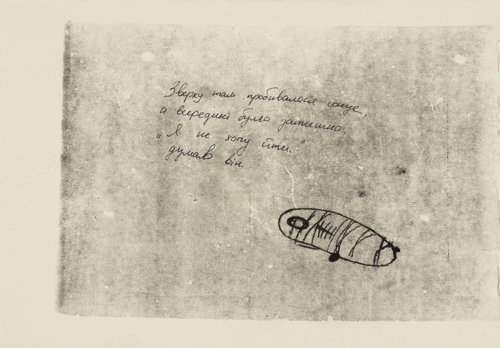 Зверху там пробивалося сонце,
а всередині було затишно.
„Я не хочу йти."
думав він